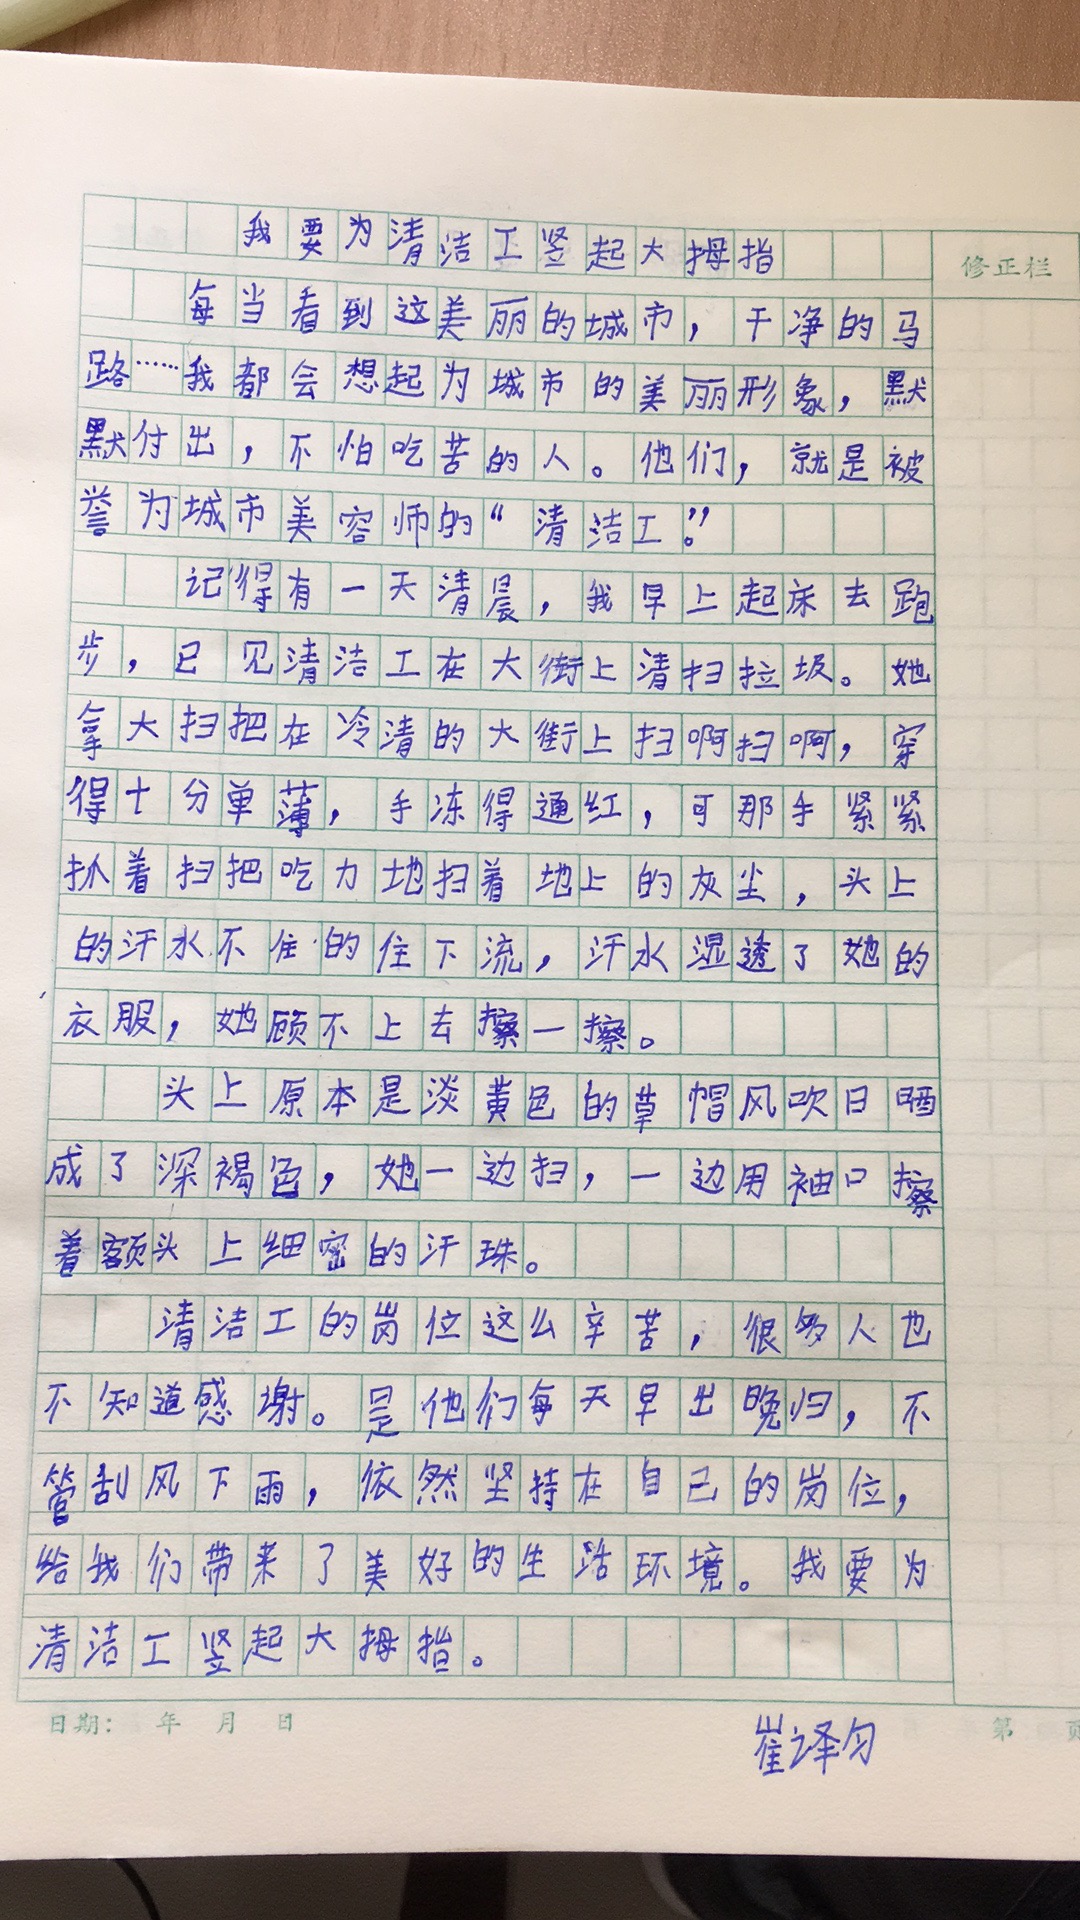 我要为清洁工竖起大拇指
修正栏
每当看到这美丽的城市，干净的马
路……我都会想起为城市的美丽形象，默
默付出，不怕吃苦的人。他们，就是被
誉为城市美容师的“清洁工。”
记得有一天清晨，我早上起床去跑
步，已见清洁工在大街上清扫拉圾。她
拿大扫把在冷清的大街上扫啊扫啊，穿
得十分单薄，手冻得通红，可那手紧紧
抓着扫把吃力地扫着地上的灰尘，头上
的汗水不住的住下流，汗水湿透了她的
衣服，她顾不上去擦一擦。
头上原本是淡黄色的草帽风吹日晒
成了深褐色，她一边扫，一边用袖口擦
着额头上细密的汗珠。
清洁工的岗位这么辛苦，很多人也
不知道感谢。是他们每天早出晚归，不
管刮风下雨，依然坚持在自己的岗位，
给我们带来了美好的生活环境。我要为
清洁工竖起大拇指。
日期： 年 月 日
第 页
崔译匀